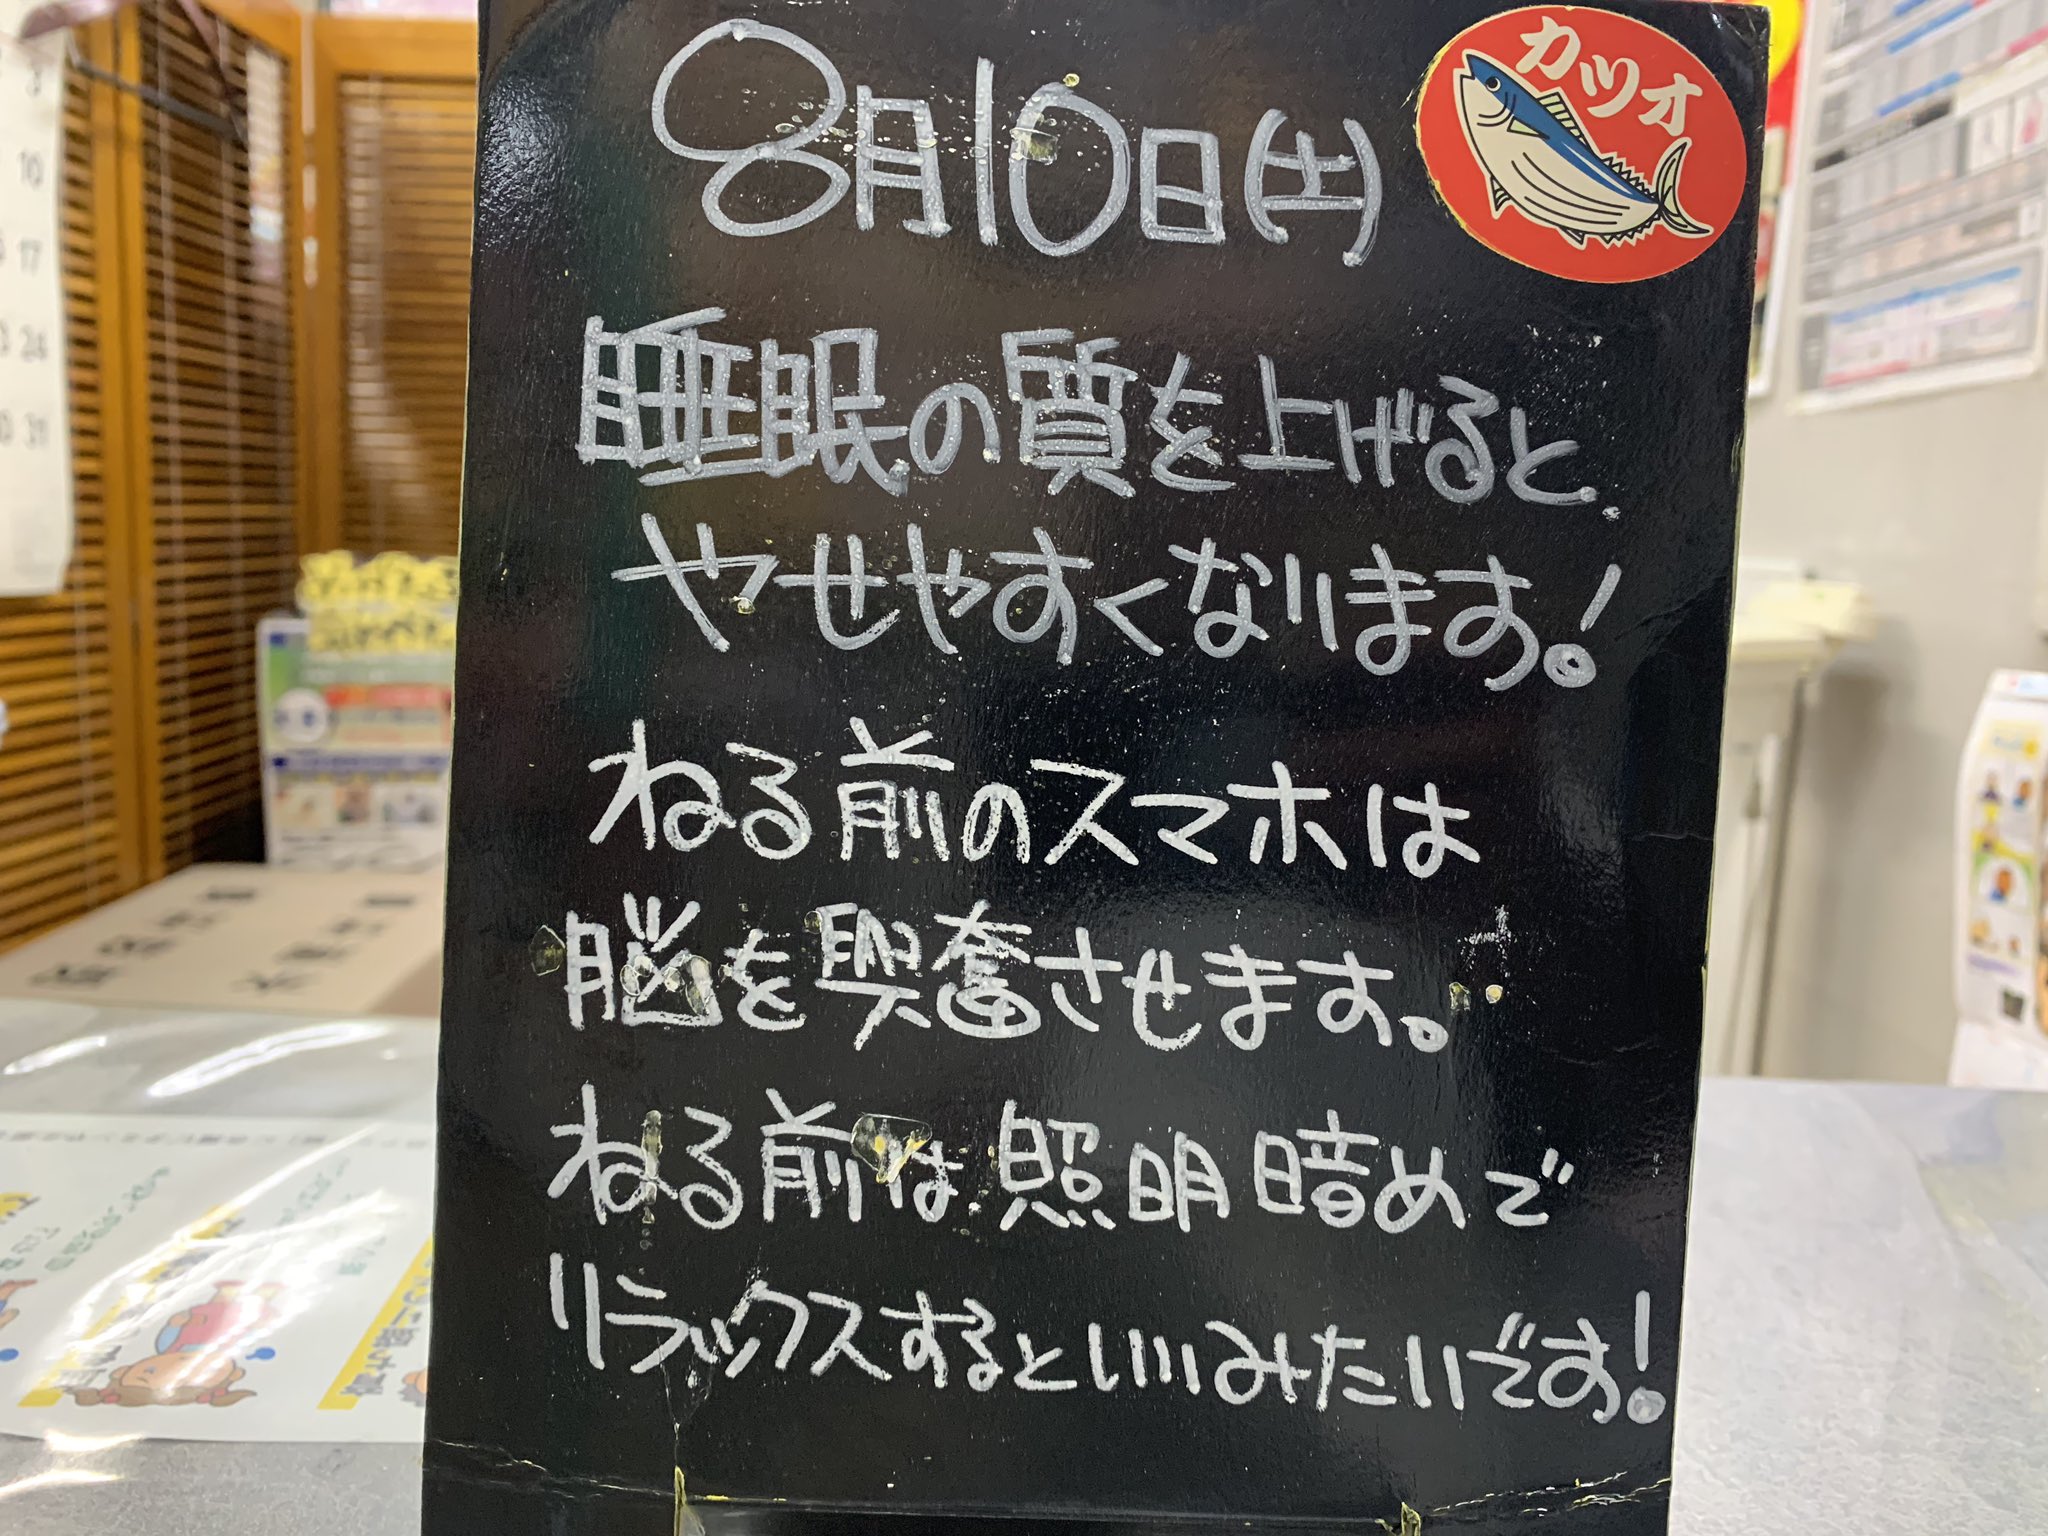 8月10日(土)
カツオ
睡眠の質を上げると、
やせやすくなります!
ねる前のスマホは
脳を興奮させます。
ねる前は照明暗めで
リラックスするといいみたいです!
3
10
17
24
31